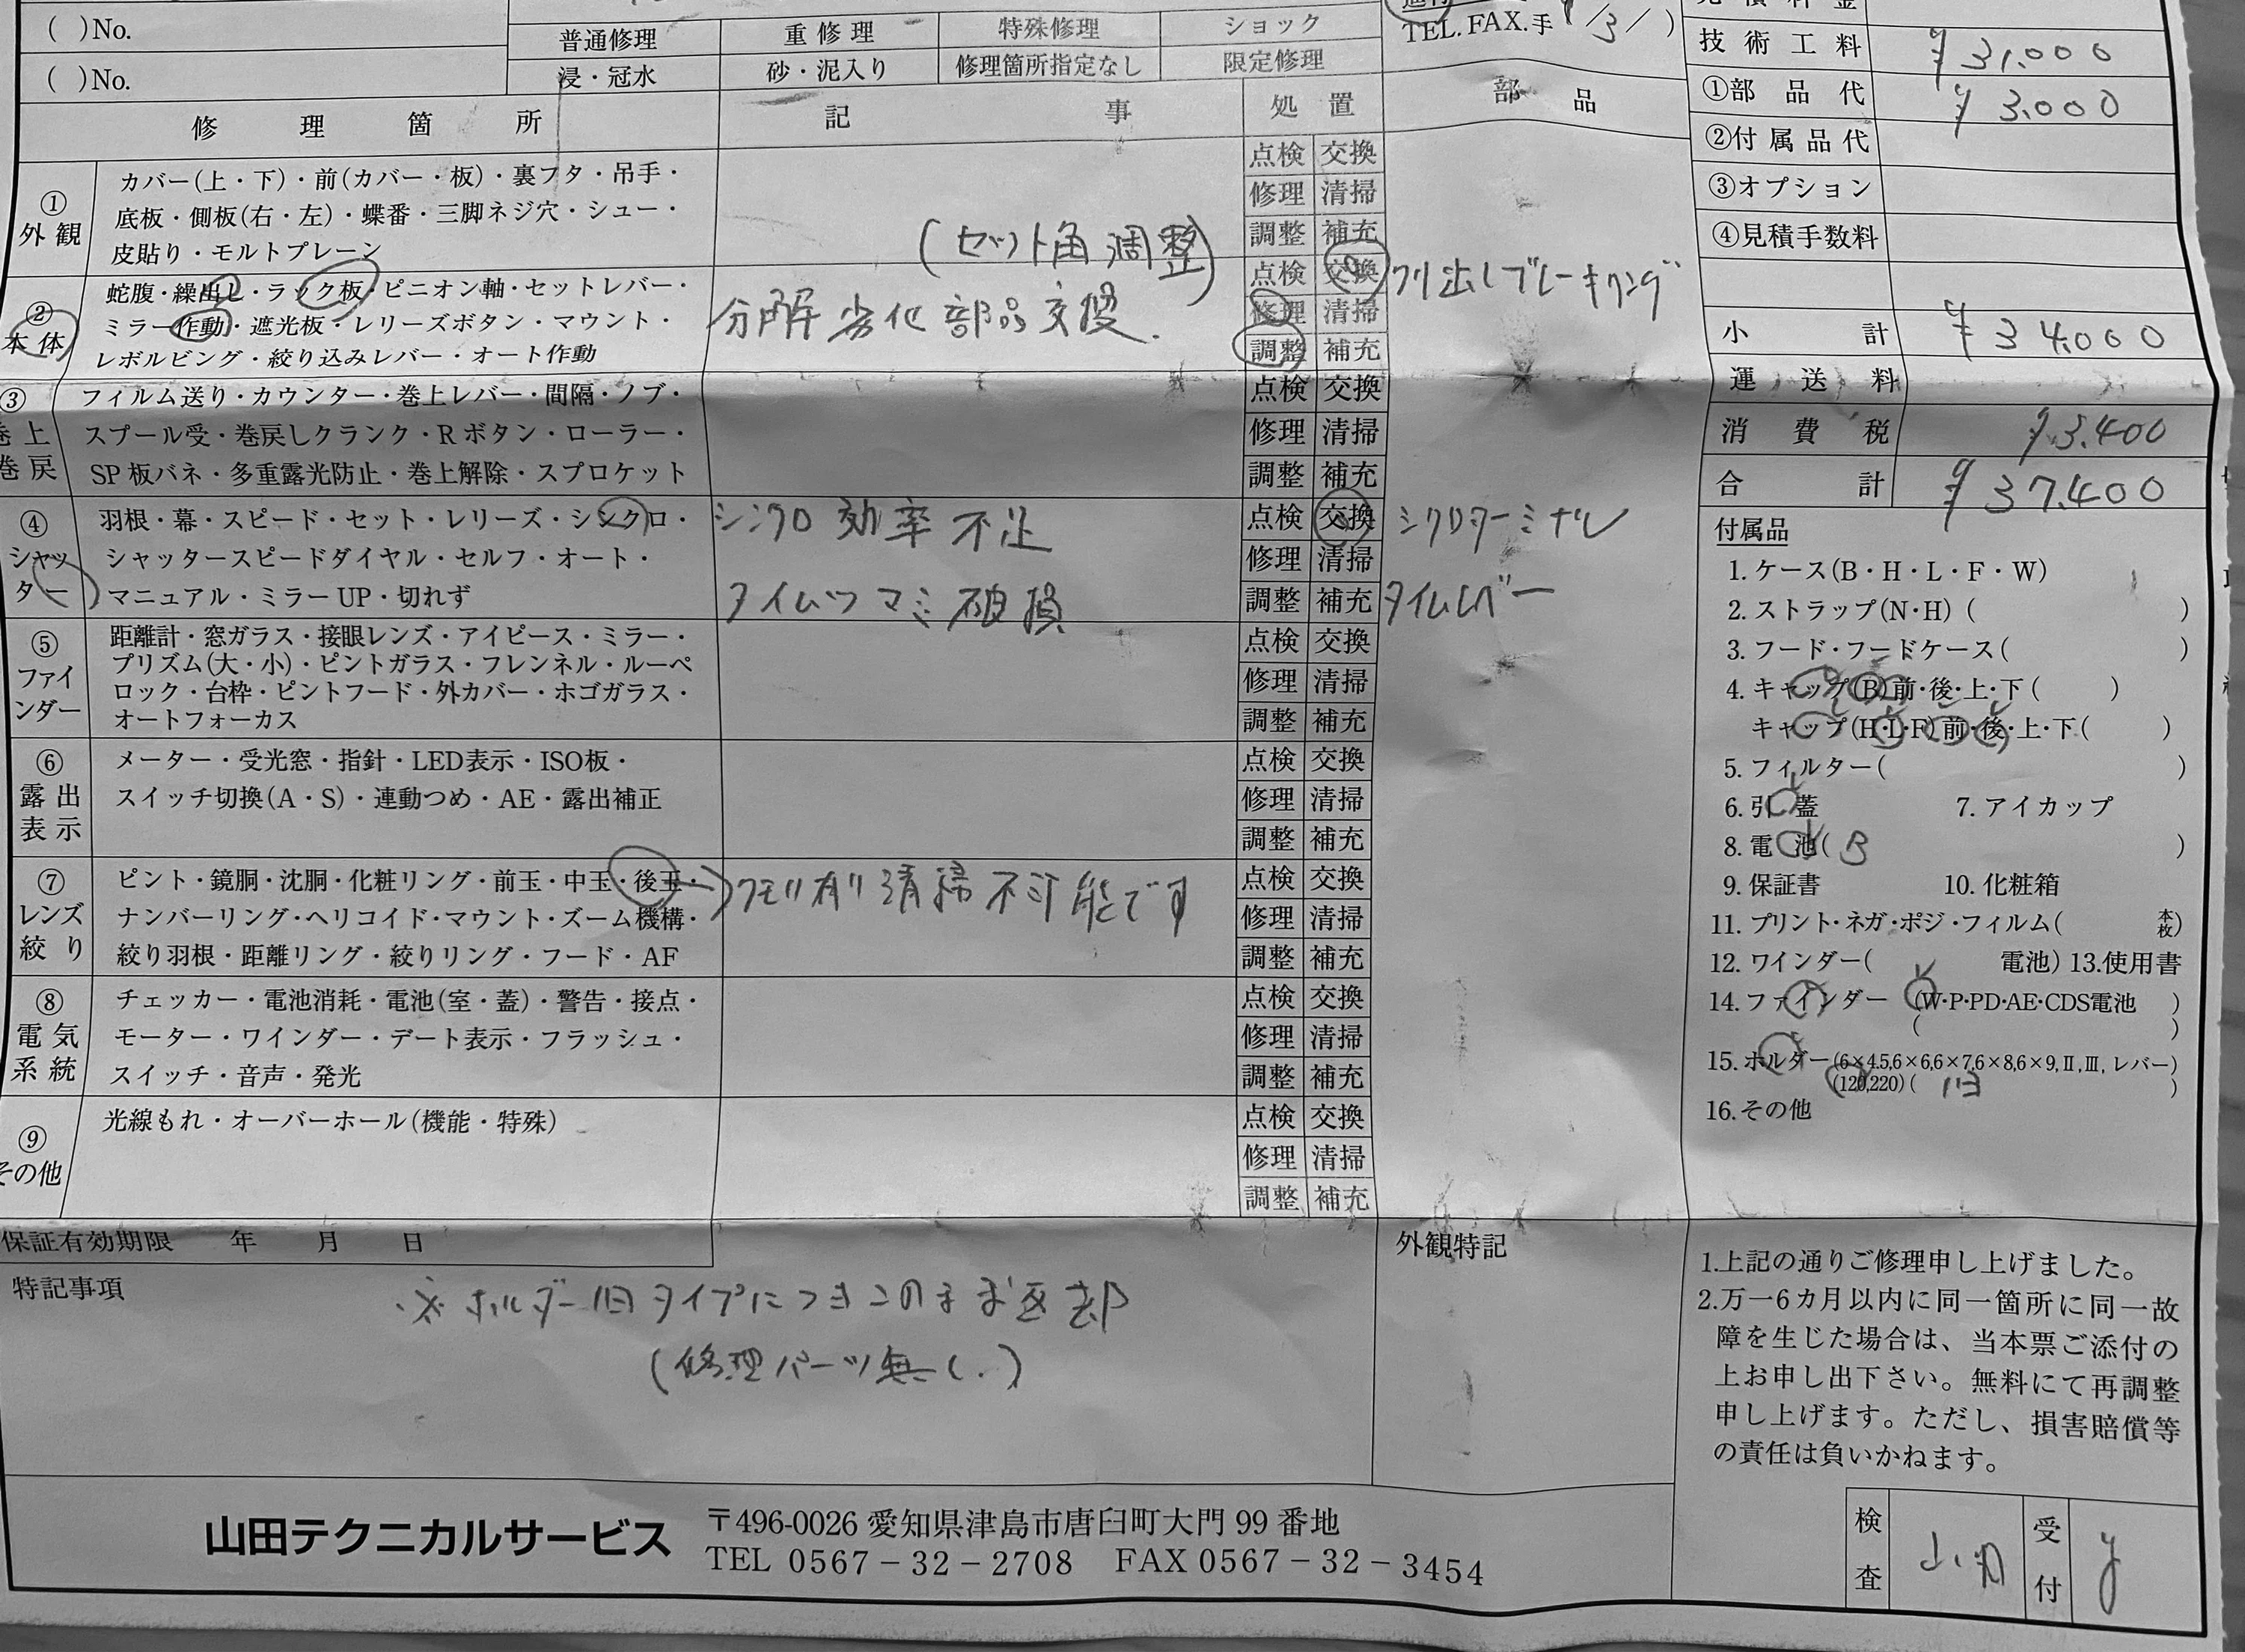 ( )No.
普通修理 重修理 特殊修理 ショック
TEL.FAX.手
技術工料 ¥31,000
( )No.
浸・冠水 砂・泥入り 修理箇所指定なし 限定修理
①部品代 ¥3,000
修理箇所 記事 処置 部品
②付属品代
③オプション
④見積手数料
小計 ¥34,000
運送料
消費税 ¥3,400
合計 ¥37,400
①外観
カバー(上・下)・前(カバー・板)・裏フタ・吊手・
底板・側板(右・左)・蝶番・三脚ネジ穴・シュー・
皮貼り・モルトプレーン
点検 交換
修理 清掃
調整 補充
②本体
蛇腹・繰出し・ラック板・ピニオン軸・セットレバー・
ミラー作動・遮光板・レリーズボタン・マウント・
レボルビング・絞り込みレバー・オート作動
(セット角調整)
分解劣化部品交換.
点検 交換
修理 清掃
調整 補充
クリ出しブレーキリング
③巻上巻戻
フィルム送り・カウンター・巻上レバー・間隔・ノブ・
スプール受・巻戻しクランク・Rボタン・ローラー・
SP板バネ・多重露光防止・巻上解除・スプロケット
点検 交換
修理 清掃
調整 補充
④シャッター
羽根・幕・スピード・セット・レリーズ・シンクロ・
シャッタースピードダイヤル・セルフ・オート・
マニュアル・ミラーUP・切れず
シンクロ効率不足
タイムツマミ破損
点検 交換
修理 清掃
調整 補充
シクロターミナル
タイムレバー
⑤ファインダー
距離計・窓ガラス・接眼レンズ・アイピース・ミラー・
プリズム(大・小)・ピントガラス・フレンネル・ルーペ
ロック・台枠・ピントフード・外カバー・ホゴガラス・
オートフォーカス
点検 交換
修理 清掃
調整 補充
⑥露出表示
メーター・受光窓・指針・LED表示・ISO板・
スイッチ切換(A・S)・連動つめ・AE・露出補正
点検 交換
修理 清掃
調整 補充
⑦レンズ絞り
ピント・鏡胴・沈胴・化粧リング・前玉・中玉・後玉・
ナンバーリング・ヘリコイド・マウント・ズーム機構・
絞り羽根・距離リング・絞りリング・フード・AF
→クモリ有り清掃不可能です
点検 交換
修理 清掃
調整 補充
⑧電気系統
チェッカー・電池消耗・電池(室・蓋)・警告・接点・
モーター・ワインダー・デート表示・フラッシュ・
スイッチ・音声・発光
点検 交換
修理 清掃
調整 補充
⑨その他
光線もれ・オーバーホール(機能・特殊)
点検 交換
修理 清掃
調整 補充
付属品
1. ケース(B・H・L・F・W)
2. ストラップ(N・H) ( )
3. フード・フードケース( )
4. キャップ(B)前・後・上・下( )
キャップ(H・L・F)前・後・上・下( )
5. フィルター( )
6. 引蓋 7. アイカップ
8. 電池( B )
9. 保証書 10. 化粧箱
11. プリント・ネガ・ポジ・フィルム( 本枚)
12. ワインダー( 電池) 13.使用書
14. ファインダー (W・P・PD・AE・CDS電池 )
( )
15. ホルダー(6×4.5,6×6,6×7,6×8,6×9,Ⅱ,Ⅲ,レバー)
(120,220)( 旧 )
16. その他
保証有効期限 年 月 日
特記事項
※ホルダー旧タイプにつきこのまま返却
(修理パーツ無し.)
外観特記
1.上記の通りご修理申し上げました。
2.万一6カ月以内に同一箇所に同一故
障を生じた場合は、当本票ご添付の
上お申し出下さい。無料にて再調整
申し上げます。ただし、損害賠償等
の責任は負いかねます。
山田テクニカルサービス
〒496-0026 愛知県津島市唐臼町大門99番地
TEL 0567-32-2708 FAX 0567-32-3454
検査 山田 受付 y